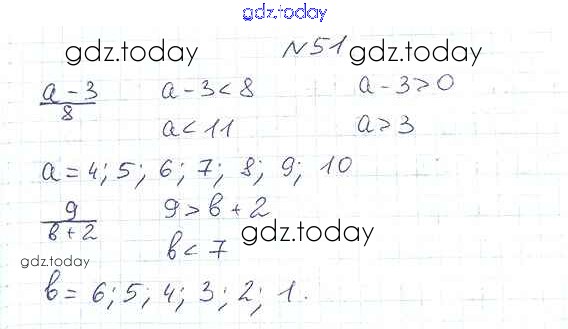 gdz.today
gdz.today N51 gdz.today
a - 3 / 8 a - 3 < 8 a - 3 > 0
a < 11 a > 3
a = 4; 5; 6; 7; 8; 9; 10
9 / в + 2 9 > в + 2
gdz.today
gdz.today в < 7
в = 6; 5; 4; 3; 2; 1.